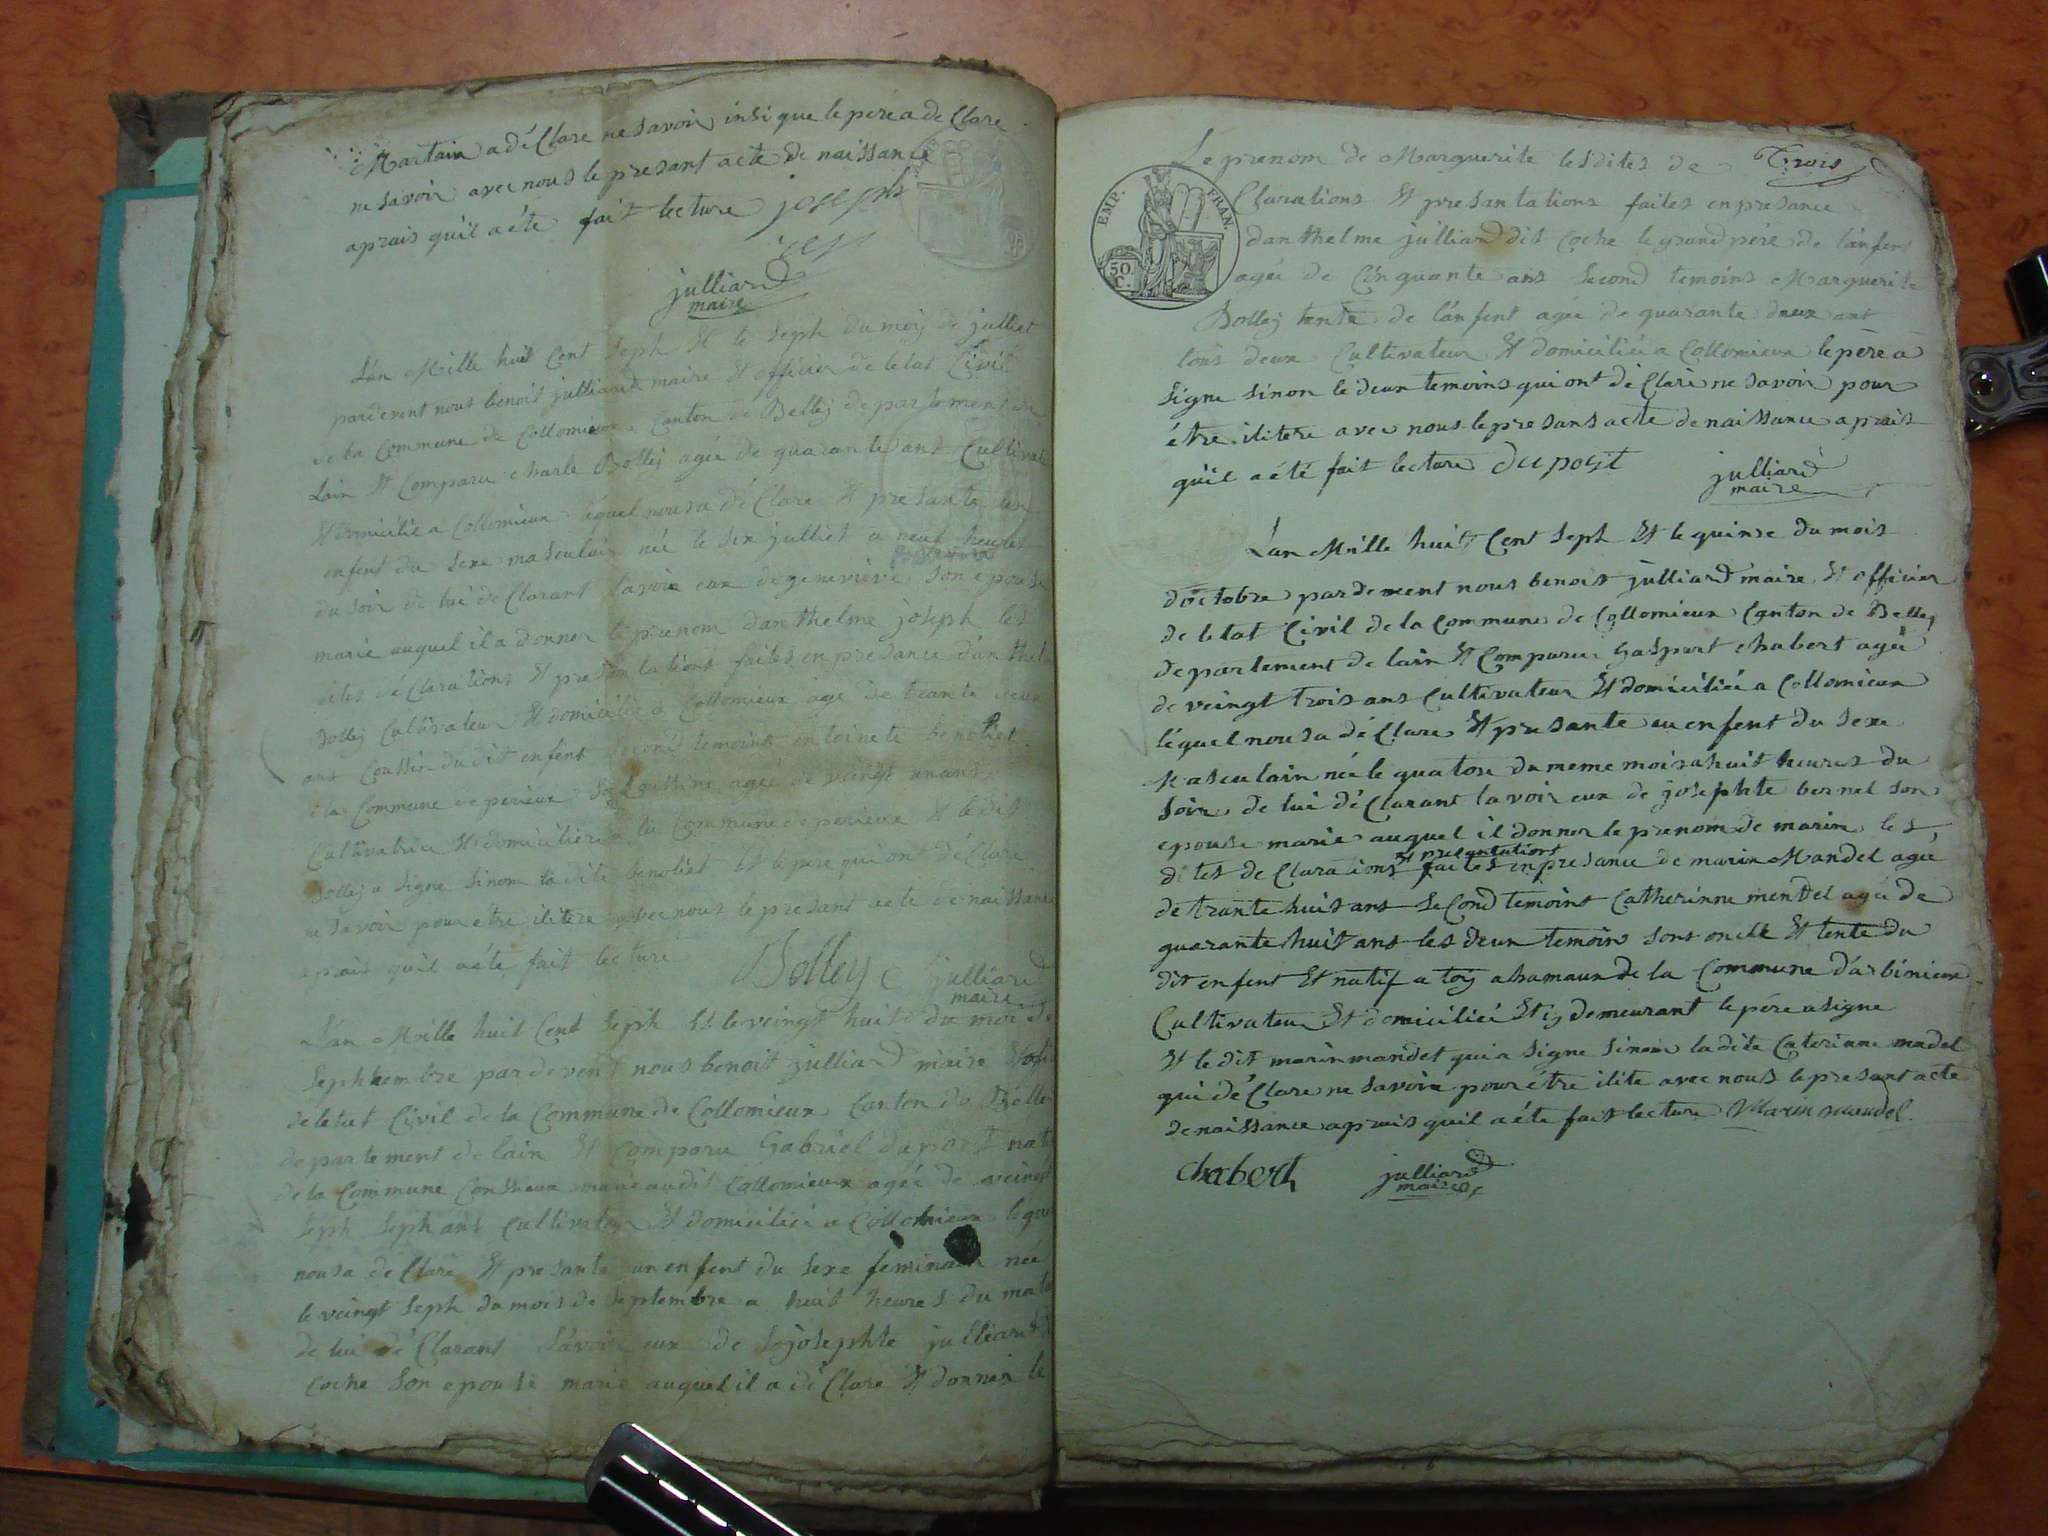 Martain a déClare ne savoir insi que le pere a de Clare
ne savoir avec nous le presant acte de naissance
aprais quil aéte fait lecture joseph
julliard
maire
Lán Mille huit Cent Seph Et le Seph du mois de julliet
pardevent nous benoit julliard maire Et officier de letat Civil
de la Commune de Collomieux Canton de Belley departement de
Lain Et Comparu charle Bolley agée de quarante ans Cultivate
Et domicilié a Collomieux léquel nousa dé Clare Et presante un
enfent du Sexe masculain née le Six julliet a neuf heures
du Soir de lui de Clarant lavoir eux de genevieve Son epouse
marie auquel il a donner le prenom danthelme joseph les
dites dé Clarations Et presantations faites enpresance danthel
Bolley Cultivateur Et domicilié a Collomieux age de trante deux
ans Coussin dudit enfent Second temoins entoinete benoliet
de la Commune de perieux Sa Coussine agée de veingt unans
Cultivatrice Et domiciliée a la Commune de perieux Et ledit
Bolley a Signe Sinom la dite benoliet Et le pere qui ont dé Clare
ne Savoir pour étre ilitere avec nous le presant acte de naissance
aprais quil aéte fait lecture Bolley julliard
maire
Lán Mille huit Cent Seph Et le veingt huit du moi de
Sephtembre pardevent nous benoit julliard maire Et offi
de letat Civil de la Commune de Collomieux Canton de Belley
departement de lain Et Comparu Gabriel duport nati
de la Commune audit Collomieux agée de veingt
Seph Seph ans Cultivateur Et domicilié a Collomieux léque
nousa de Clare Et presante un enfent du Sexe feminain née
le veingt Seph du mois de Septembre a huit heures du mati
de lui dé Clarant lavoir eux de josephte julliard
Coche Son epouse marie auquel il a dé Clare Et donner le
Le prenom de Marguerite lesdites de Trois
EMP. FRAN.
50 C.
Clarations Et presantations faites enpresance
danthelme julliard dit Coche le grand pére de lánfent
agée de Cinquante ans Second temoins Marguerite
Bolley tente de lánfent agée de quarante deux ans
tous deux Cultivateur Et domicilié a Collomieux lepère a
Signe Sinon le deux temoins qui ont dé Clare ne Savoir pour
étre ilitere avec nous lepresans acte de naissance aprais
quil aété fait lecture duport julliard
maire
Lan Mille huit Cent Seph Et le quinse du mois
doctobre pardevent nous benoit julliard maire Et officier
de letat Civil de la Commune de Collomieux Canton de Belley
departement de lain Et Comparu Gaspart chabert agée
de veingt trois ans Cultivateur Et domicilié a Collomieux
léquel nousa dé Clare Et presante eu enfent du Sexe
Masculain née le quatorse du meme mois a huit heures du
Soir de lui dé Clarant lavoir eux de josephte bornet Son
epouse marie auquel il donner le prenom de marin les
dites de Clarations Et presantations faites enpresance de marin Mandel agée
de trante huit ans Second temoins Catherinne mendel agée de
quarante huit ans les deux temoins Sont oncle Et tente du
dit enfent Et natif a toy ahamaux de la Commune dárbinieux
Cultivateur Et domicilié Et y demeurant le pére asigne
Et le dit marin mandel quia Signe Sinom ladite Caterinne madel
qui dé Clare ne Savoir pour étre ilite avec nous le presant acte
de naissance aprais quil aéte fait lecture Marin mandel.
Chabert julliard
maire